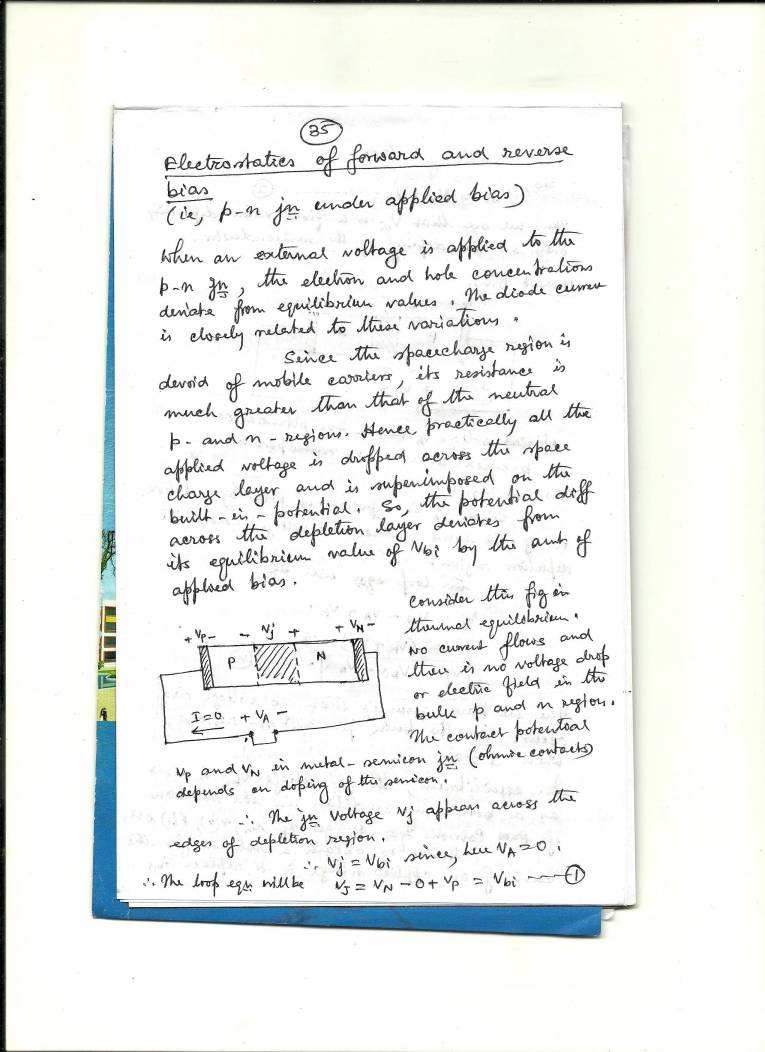 35
Electrostatics of forward and reverse
bias
(ie, p-n jn under applied bias)
When an external voltage is applied to the
p-n jn, the electron and hole concentrations
deviate from equilibrium values. The diode current
is closely related to these variations.
Since the spacecharge region is
devoid of mobile carriers, its resistance is
much greater than that of the neutral
p- and n- regions. Hence, practically all the
applied voltage is dropped across the space
charge layer and is superimposed on the
built-in-potential. So, the potential diff
across the depletion layer deviates from
its equilibrium value of Vbi by the amt of
applied bias.
Consider this fig in
thermal equilibrium.
No current flows and
there is no voltage drop
or electric field in the
bulk p and n region.
The contact potential
+ VP - - Vj + + VN -
P N
I=0 + VA -
VP and VN in metal-semicon jn (ohmic contacts)
depends on doping of the semicon.
∴ The jn voltage Vj appears across the
edges of depletion region.
∴ Vj = Vbi since, here VA=0.
∴ The loop eqn will be VJ = VN - 0 + VP = Vbi —— 1